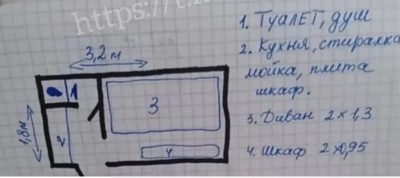 https://t.
3,2 м
1. Туалет, душ
2. Кухня, стиралка
мойка, плита
шкаф.
3. Диван 2×1,3
4. Шкаф 2×0,95
1,8м
1
2
3
4